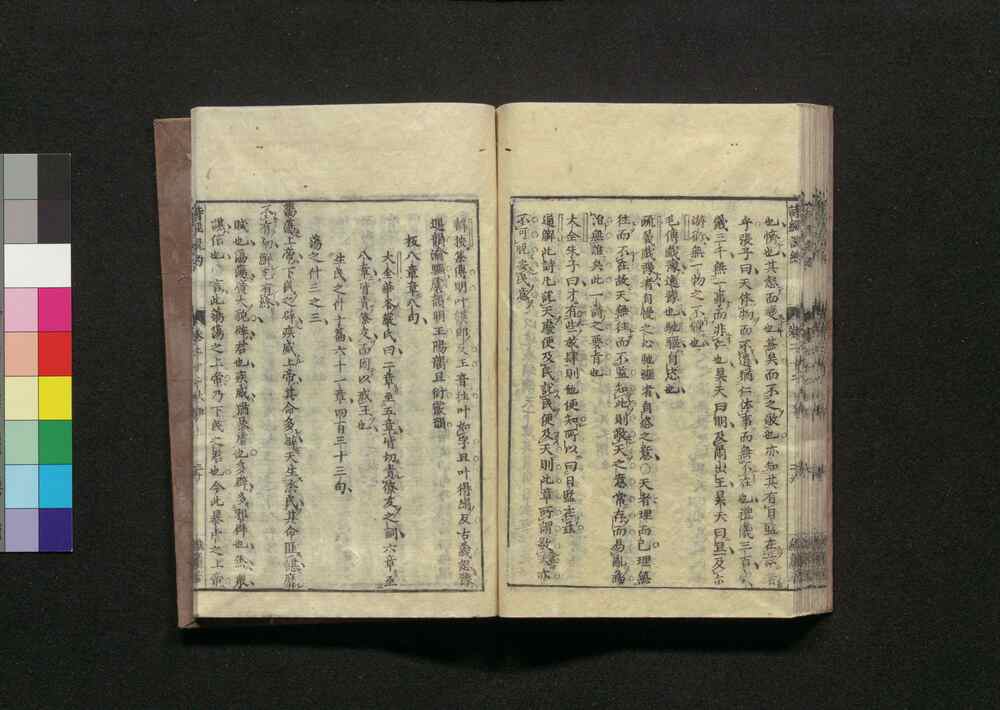 也懠也其怒而變也甚矣而不之敬也亦知其有日監在茲者
乎張子曰天体物而不遺猶仁体事而無不在也禮儀三百威
儀三千無一事而非仁也昊天曰明及爾出王昊天曰旦及尓
游衍無一物之不體也
毛傳戲豫逸豫也馳驅自恣也
疏義戲豫者自慢之心馳驅者自恣之意○天者理而已理無
往而不在故天無往而不監知此則敬天之意常存而易亂為
治無難矣此一詩之要旨也
大全朱子曰才有些放肆則他便知所以曰日監在茲
通解此詩凡説天處便及民説民處便及天則此章所謂敬天亦
不可脱安民意
板八章章八句
大全華谷嚴氏曰二章至五章皆切責僚友之詞六章至
八章皆責僚友而因以戒王也
生民之什十篇六十一章四百三十三句
蕩之什三之三
蕩蕩上帝下民之辟疾威上帝其命多辟天生烝民其命匪諶靡
不有初鮮克有終
賦也蕩蕩廣大貌辟君也疾威猶暴虐也多辟多邪辟也烝衆
諶信也 言此蕩蕩之上帝乃下民之君也今此暴虐之上帝